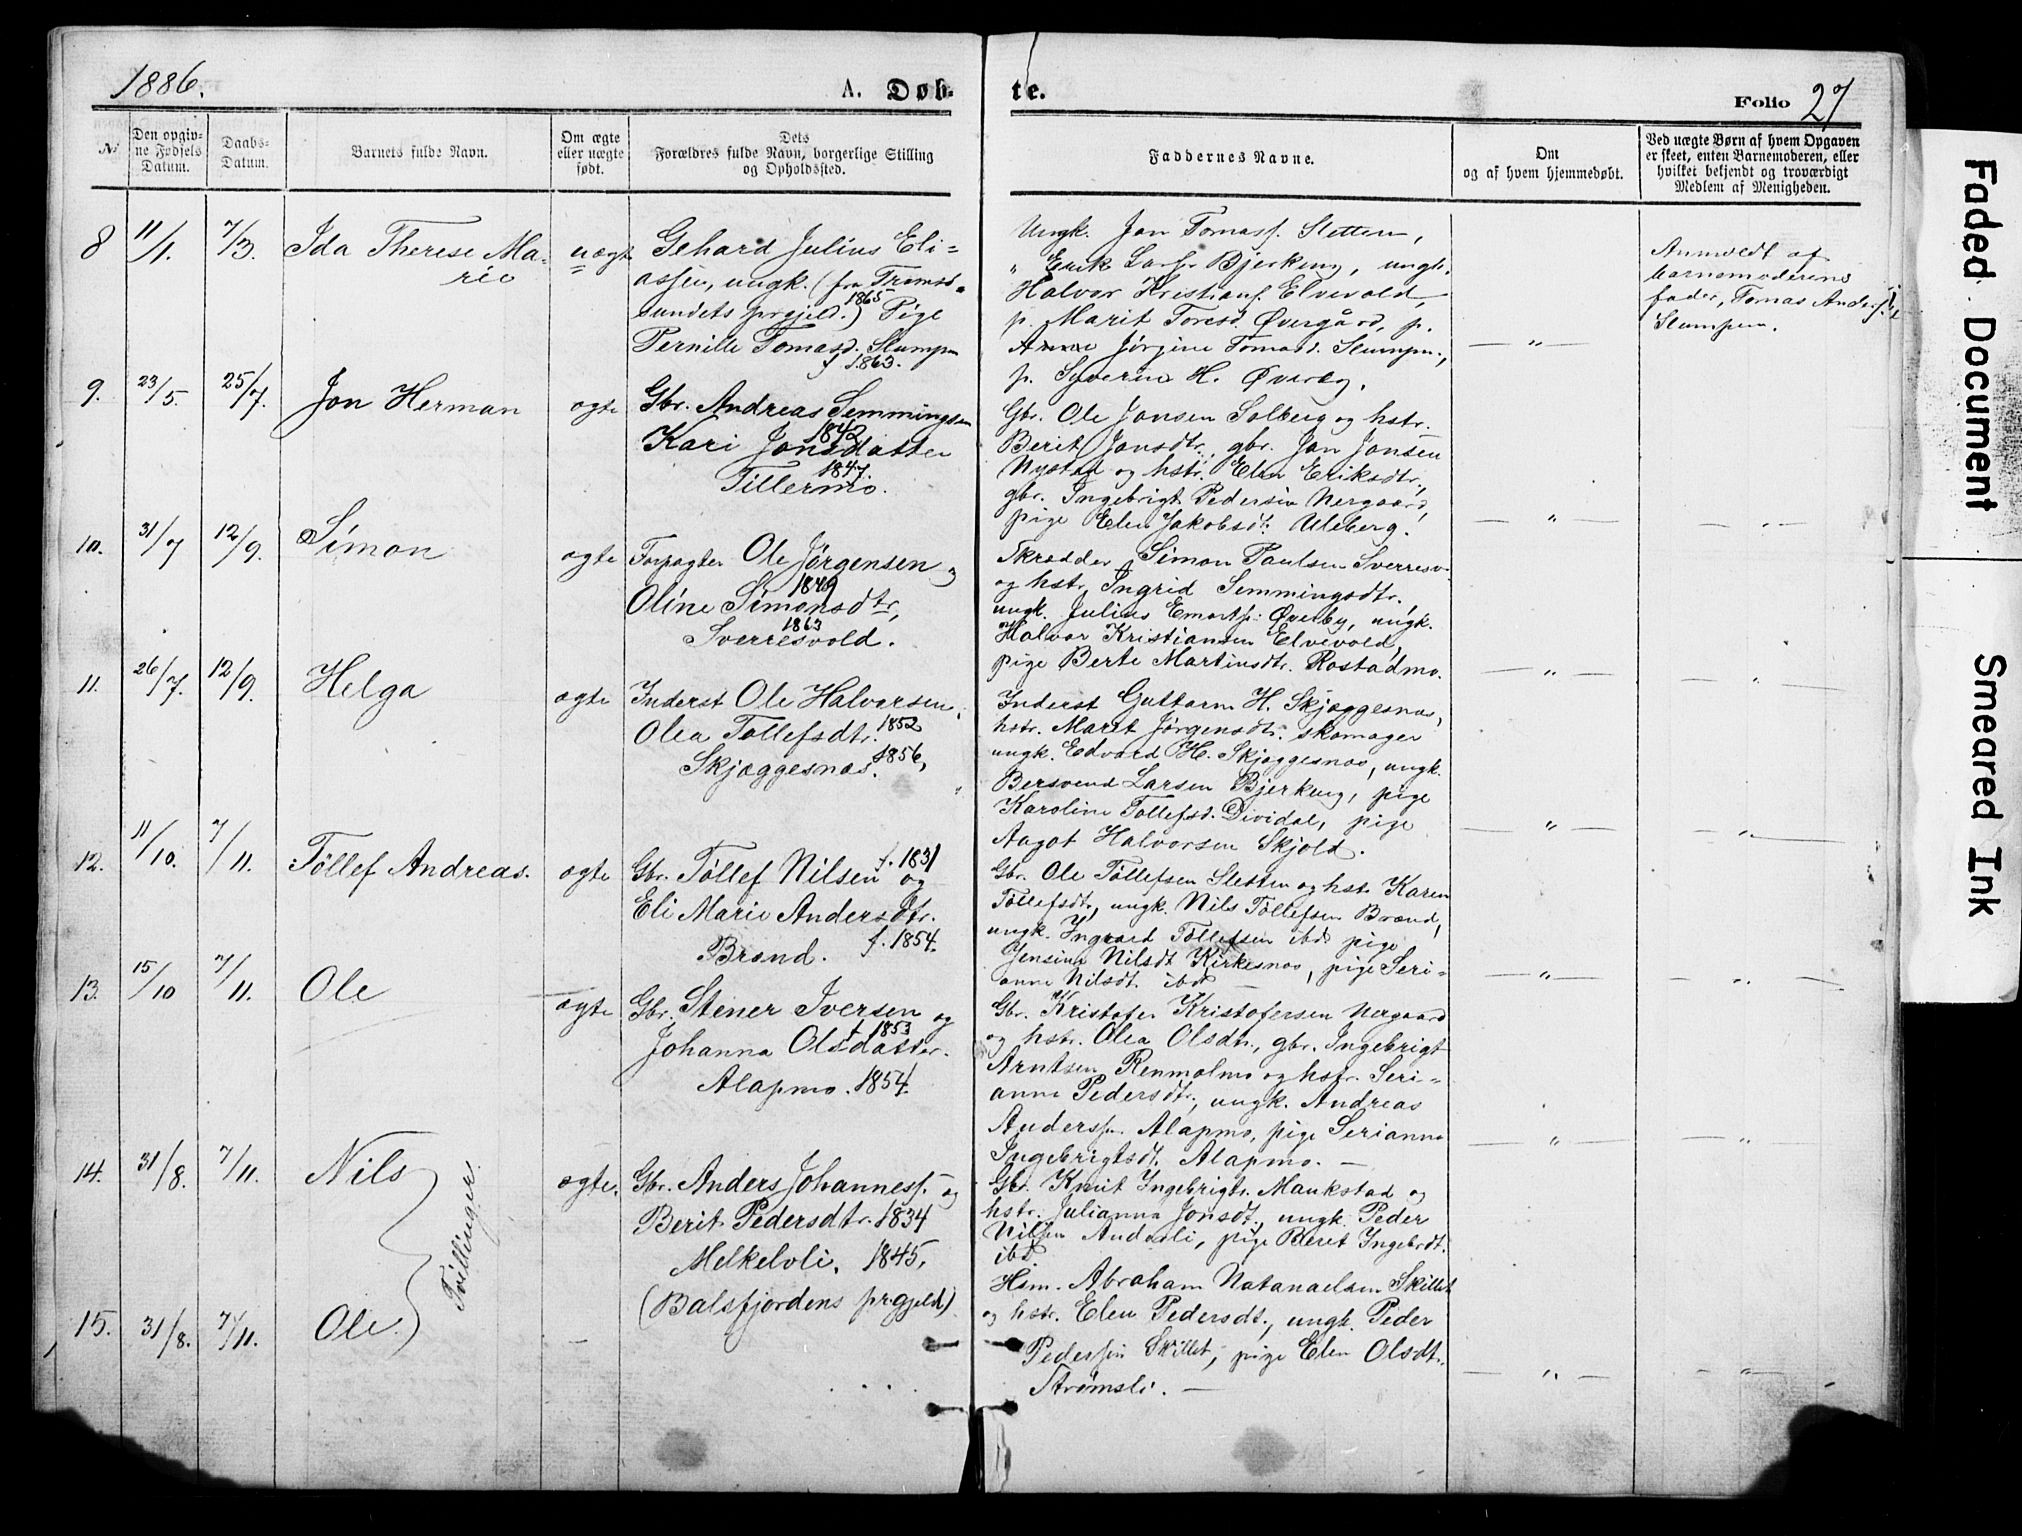 1886.
A. Døb-
te.
Folio 27
№
Den opgiv-
ne Fødsels
Datum.
Daabs-
Datum.
Barnets fulde Navn.
Om ægte
eller uægte
født.
Dets
Forældres fulde Navn, borgerlige Stilling
og Opholdssted.
Faddernes Navne.
Om
og af hvem hjemmedøbt.
Ved uægte Børn af hvem Opgaven
er skeet, enten Barnemoderen, eller
hvilket bekjendt og troværdigt
Medlem af Menigheden.
8 11/1. 7/3. Ida Therese Ma-
rie
uægt
Gehard Julius Eli-
assen, ungk. (fra Tromsø-
sundets prgjeld.) 1865 Pige
Pernille Tomasd. Slumpen
f. 1863.
Ungk. Jon Tomass. Sletten,
" Erik Larss. Bjerkeng, ungk.
Halvor Kristians. Elvevold,
p. Marit Toresd. Øvergård, p.
Jørgine Tomasd. Slumpen,
p. Syverine H. Øverby.
— " —
Anmeldt af
barnemoderens
fader, Tomas Anders.
Slumpen.
9. 23/5. 25/7. Jon Herman
ægte
Gbr. Andreas Semmingsen
1842
Kari Jonsdatter
1847.
Tillermo.
Gbr. Ole Jonsen Solberg og hstr.
Berit Jonsdtr., gbr. Jon Jonsen
Nystad og hstr. Elen Eriksdtr.,
gbr. Ingebrigt Pedersen Nergaard,
pige Elen Jakobsdt. Uleberg.
— " —
— " —
10. 31/7 12/9. Simon
ægte
Forpagter Ole Jørgensen og
1849
Oline Simonsdtr,
1863
Sverresvold.
Skrædder Simon Paulsen Sverresv.
og hstr. Ingrid Semmingsdtr.
ungk. Julius Øverby, ungk.
Halvor Kristiansen Elvevold,
pige Berte Martinsdtr. Rostadmo.
— " —
— " —
11. 26/7. 12/9. Helga
ægte
Inderst Ole Halvorsen,
Olea Tollefsdtr. 1852
Skjæggesnæs. 1856,
Inderst Guttorm H. Skjæggesnæs,
hstr. Maret Jørgensdtr. skomager
ungk. Edvard H. Skjæggesnæs, ungk.
Bersvend Larsen Bjerkeng, pige
Karoline Tollefsd. Dividal, pige
Aagot Halvorsen Skjold.
— " —
— " —
12. 11/10. 7/11. Tollef Andreas.
ægte
Gbr. Tollef Nilsen f. 1831 og
Eli Marie Andersdtr.
Brænd. f. 1854.
Gbr. Ole Tollefsen Sletten og hstr Karen
Tollefsdtr, ungk. Nils Tollefsen Brænd,
ungk. Ingvard Tollefsen ibd pige
Jensine Nilsdt Kirkesnæs, pige Seri-
anne Nilsdt. ibd —
— " —
— " —
13. 15/10 7/11. Ole
ægte
Gbr. Stener Iversen og
f. 1853
Johanna Olsdatter.
Alapmo. 1854.
Gbr. Kristofer Kristofersen Nergaard
og hstr. Olea Olsdtr., gbr. Ingebrigt
Arntsen Renmælmo og hstr. Seri-
anna Pedersdtr., ungk. Andreas
Anderss. Alapmo, pige Serianna
Ingebrigtsdt. Alapmo. —
— " —
— " —
14. 31/8. 7/11. Nils
Tvillinger.
ægte.
Gbr. Anders Johanness. og
Berit Pedersdtr. 1834
Melkelvli. 1845.
(Balsfjordens prgjeld)
Gbr. Knut Ingebrigts. Maukstad og
hstr. Julianna Jonsdt., ungk. Peder
Nilsen Anderli, pige Beret Ingebrdt.
ibd
15. 31/8. 7/11. Ole.
—
Abraham Natanaelsen Skillet
og hstr. Elen Pedersdt., ungk. Peder
Pedersen Skillet, pige Elen Olsdt.
Strømsli. —
— " —
— " —
Faded Document
Smeared Ink